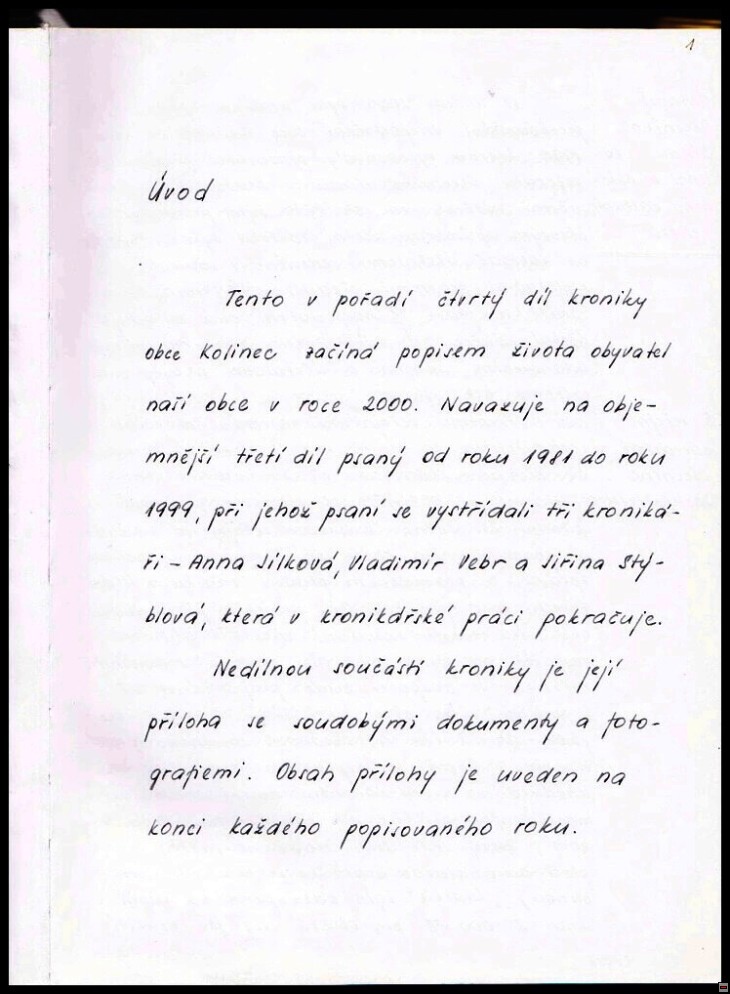 1
Úvod
Tento v pořadí čtvrtý díl kroniky
obce Kolinec začíná popisem života obyvatel
naší obce v roce 2000. Navazuje na obje-
mnější třetí díl psaný od roku 1981 do roku
1999, při jehož psaní se vystřídali tři kroniká-
ři – Anna Jílková, Vladimír Vebr a Jiřina Stý-
blová, která v kronikářské práci pokračuje.
Nedílnou součástí kroniky je její
příloha se soudobými dokumenty a foto-
grafiemi. Obsah přílohy je uveden na
konci každého popisovaného roku.